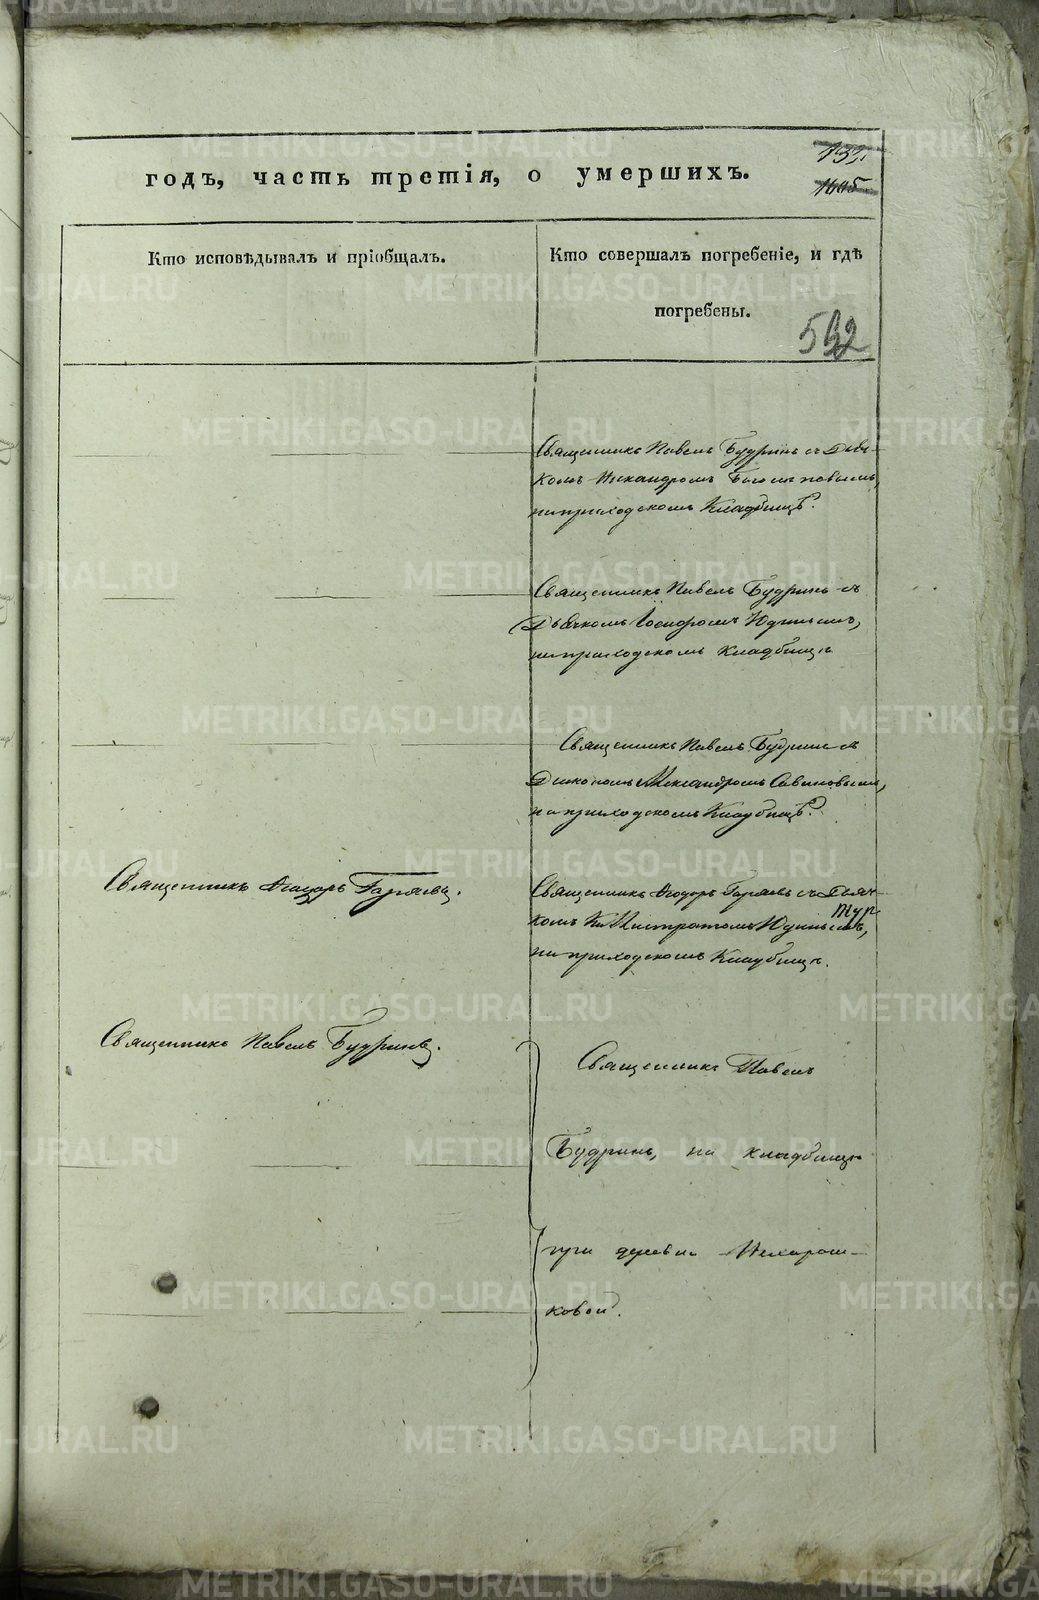 годъ, часть третія, о умершихъ.
Кто исповѣдывалъ и пріобщалъ.
Кто совершалъ погребеніе, и гдѣ
погребены.
Священникъ Павелъ Будринъ съ Дья-
комъ
на приходскомъ Кладбищѣ.
Священникъ Павелъ Будринъ съ
Дьячкомъ Юдинымъ,
на приходскомъ кладбищѣ
Священникъ Павелъ Будринъ съ
Діакономъ Александромъ Савиновымъ,
на приходскомъ Кладбищѣ.
Священникъ Ѳеодоръ Гаряевъ.
Священникъ Ѳеодоръ Гаряевъ съ Дьяч-
комъ
на приходскомъ Кладбищѣ.
Священникъ Павелъ Будринъ.
Священникъ Павелъ
Будринъ, на кладбищѣ
при деревнѣ
ковой.
METRIKI.GASO-URAL.RU